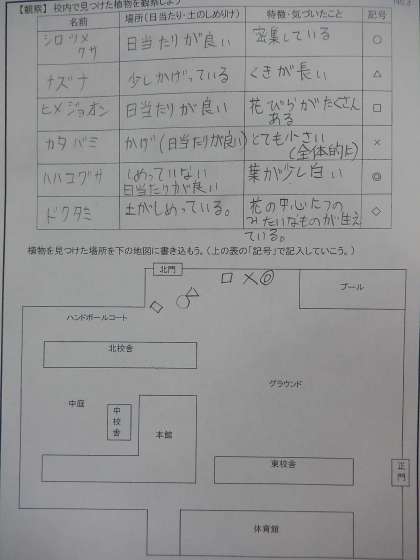 【観察】 校内で見つけた植物を観察しよう
No.3
名前 場所(日当たり・土のしめりけ) 特徴・気づいたこと 記号
シロツメ
クサ
日当たりが良い
密集している
○
ナズナ
少しかげっている
くきが長い
△
ヒメジョオン
日当たりが良い
花びらがたくさん
ある
□
カタバミ
かげ(日当たりが良い)
とても小さい
(全体的に)
×
ハハコグサ
しめっていない
日当たりが良い
葉が少し白い
◎
ドクダミ
土がしめっている。
花の中心に
みたいなものが生え
ている。
◇
植物を見つけた場所を下の地図に書き込もう。(上の表の「記号」で記入していこう。)
北門
□ × ◎
プール
◇ ○ △
ハンドボールコート
北校舎
グラウンド
中庭
中校舎
本館
東校舎
正門
体育館